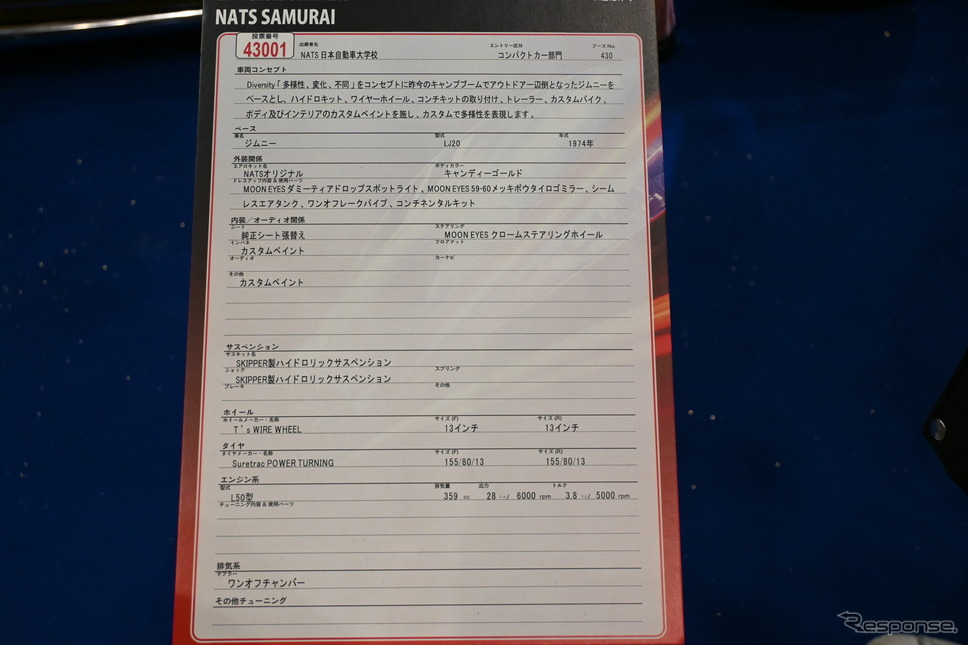 NATS SAMURAI
投票番号
43001
出展者名
NATS 日本自動車大学校
エントリー区分
コンパクトカー部門
ブース No.
430
車両コンセプト
Diversity「多様性、変化、不同」をコンセプトに昨今のキャンプブームでアウトドアー辺倒となったジムニーを
ベースとし、ハイドロキット、ワイヤーホイール、コンチキットの取り付け、トレーラー、カスタムバイク、
ボディ及びインテリアのカスタムペイントを施し、カスタムで多様性を表現します。
ベース
車名 型式 年式
ジムニー LJ20 1974年
外装関係
エアロキット名 ボディカラー
NATSオリジナル キャンディーゴールド
ドレスアップ内容&使用パーツ
MOON EYESダミーティアドロップスポットライト、MOON EYES 59-60メッキボウタイロゴミラー、シーム
レスエアタンク、ワンオフレークパイプ、コンチネンタルキット
内装／オーディオ関係
シート ステアリング
純正シート張替え MOON EYES クロームステアリングホイール
インパネ フロアマット
カスタムペイント
オーディオ カーナビ
その他
カスタムペイント
サスペンション
サスキット名
SKIPPER製ハイドロリックサスペンション
ショック スプリング
SKIPPER製ハイドロリックサスペンション
ブレーキ その他
ホイール
ホイールメーカー・名称 サイズ(F) サイズ(R)
T's WIRE WHEEL 13インチ 13インチ
タイヤ
タイヤメーカー・名称 サイズ(F) サイズ(R)
Suretrac POWER TURNING 155/80/13 155/80/13
エンジン系
型式 排気量 出力 トルク
L50型 359 cc 28 / 6000 rpm 3.8 / 5000 rpm
チューニング内容&使用パーツ
排気系
マフラー
ワンオフチャンバー
その他チューニング
Response.